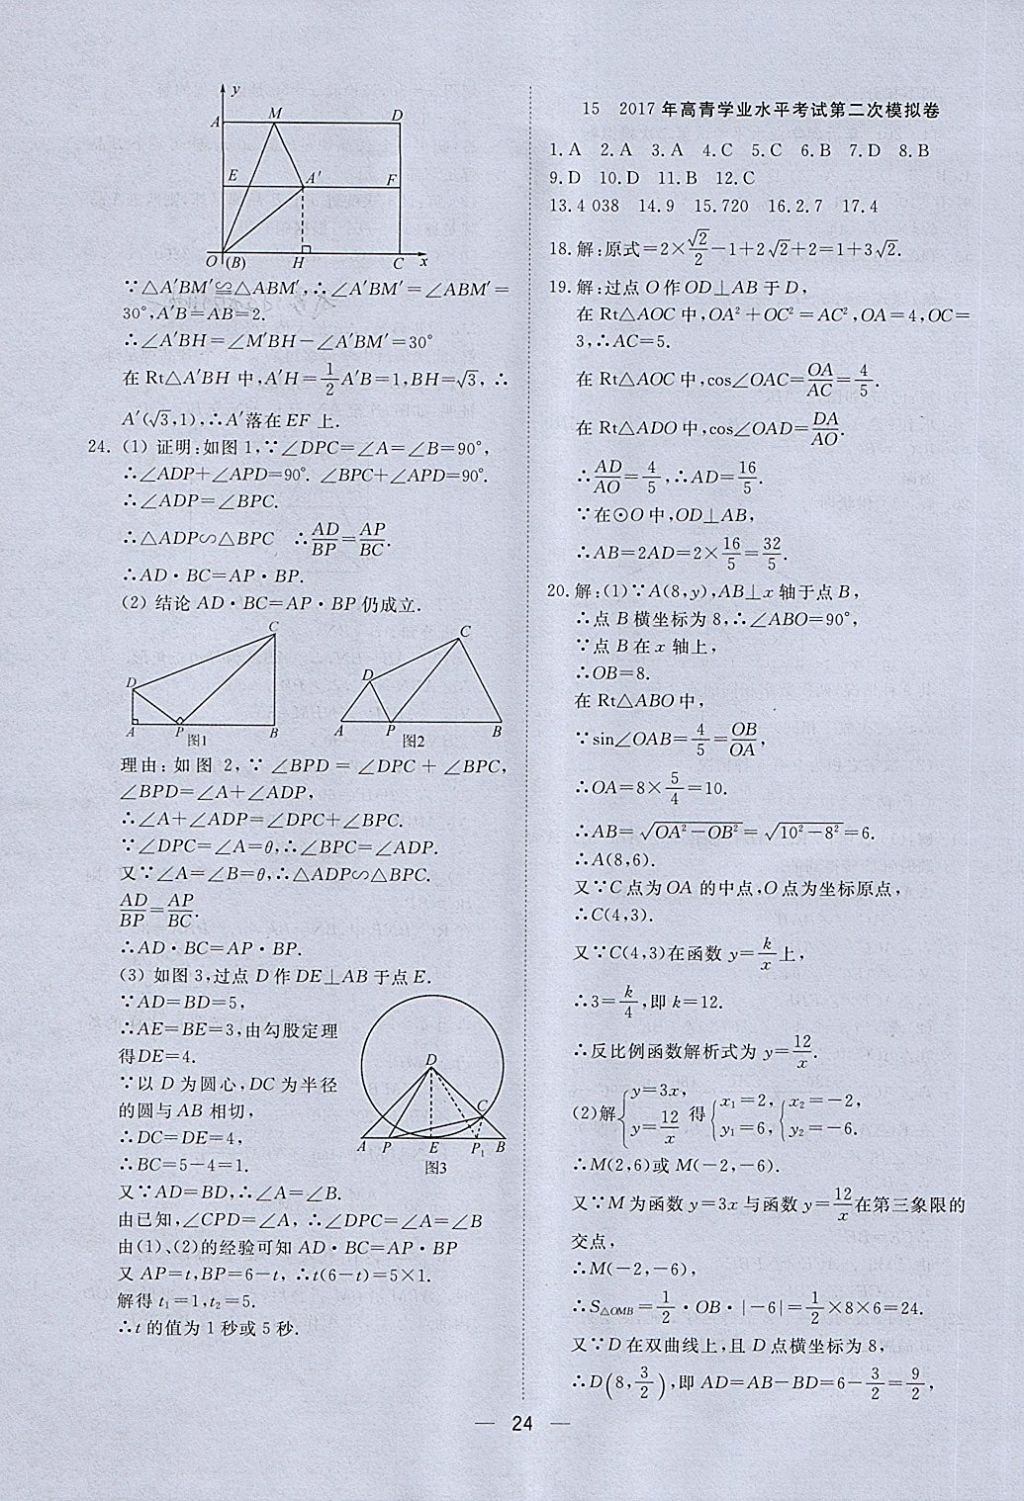 y
A M D
E A′ F
O (B) H C x
∵△A′BM′≌△ABM′,∴∠A′BM′=∠ABM′=
30°,A′B=AB=2.
∴∠A′BH=∠M′BH-∠A′BM′=30°
在 Rt△A′BH 中,A′H=1/2A′B=1,BH=√3, ∴
A′(√3,1),∴A′落在EF 上.
24. (1) 证明:如图 1,∵∠DPC=∠A=∠B=90°,
∴∠ADP+∠APD=90°. ∠BPC+∠APD=90°.
∴∠ADP=∠BPC.
∴△ADP∽△BPC ∴AD/BP=AP/BC.
∴AD·BC=AP·BP.
(2) 结论 AD·BC=AP·BP 仍成立.
C
D
A P B
图1
C
D
A P B
图2
理由:如图 2,∵ ∠BPD = ∠DPC + ∠BPC,
∠BPD=∠A+∠ADP,
∴∠A+∠ADP=∠DPC+∠BPC.
∵∠DPC=∠A=θ,∴∠BPC=∠ADP.
又∵∠A=∠B=θ,∴△ADP∽△BPC.
AD/BP=AP/BC.
∴AD·BC=AP·BP.
(3) 如图 3,过点 D 作 DE⊥AB 于点 E.
∵AD=BD=5,
∴AE=BE=3,由勾股定理
得DE=4.
∵以 D 为圆心,DC 为半径
的圆与 AB 相切,
∴DC=DE=4,
∴BC=5-4=1.
D
C
A P E P₁ B
图3
又∵AD=BD,∴∠A=∠B.
由已知,∠CPD=∠A, ∴∠DPC=∠A=∠B
由(1)、(2)的经验可知 AD·BC=AP·BP
又 AP=t,BP=6-t, ∴t(6-t)=5×1.
解得 t₁=1,t₂=5.
∴t 的值为 1 秒或 5 秒.
15 2017 年高青学业水平考试第二次模拟卷
1.A 2.A 3.A 4.C 5.C 6.B 7.D 8.B
9.D 10.D 11.B 12.C
13.4 038 14.9 15.720 16.2.7 17.4
18.解:原式=2×√2/2-1+2√2+2=1+3√2.
19.解:过点 O 作 OD⊥AB 于 D,
在 Rt△AOC 中,OA²+OC²=AC²,OA=4,OC=
3,∴AC=5.
在 Rt△AOC 中,cos∠OAC=OA/AC=4/5.
在 Rt△ADO 中,cos∠OAD=DA/AO.
∴AD/AO=4/5,∴AD=16/5.
∵在⊙O 中,OD⊥AB,
∴AB=2AD=2×16/5=32/5.
20.解:(1)∵A(8,y),AB⊥x 轴于点 B,
∴点 B 横坐标为 8,∴∠ABO=90°,
∵点 B 在 x 轴上,
∴OB=8.
在 Rt△ABO 中,
∵sin∠OAB=4/5=OB/OA,
∴OA=8×5/4=10.
∴AB=√(OA²-OB²)=√(10²-8²)=6.
∴A(8,6).
又∵C 点为 OA 的中点,O 点为坐标原点,
∴C(4,3).
又∵C(4,3)在函数 y=k/x上,
∴3=k/4,即 k=12.
∴反比例函数解析式为 y=12/x.
(2)解{y=3x, y=12/x 得{x₁=2, y₁=6, {x₂=-2, y₂=-6.
∴M(2,6)或 M(-2,-6).
又∵M 为函数 y=3x 与函数 y=12/x在第三象限的
交点,
∴M(-2,-6),
∴S△OMB=1/2·OB·|-6|=1/2×8×6=24.
又∵D 在双曲线上,且 D 点横坐标为 8,
∴D(8,3/2),即 AD=AB-BD=6-3/2=9/2,
— 24 —